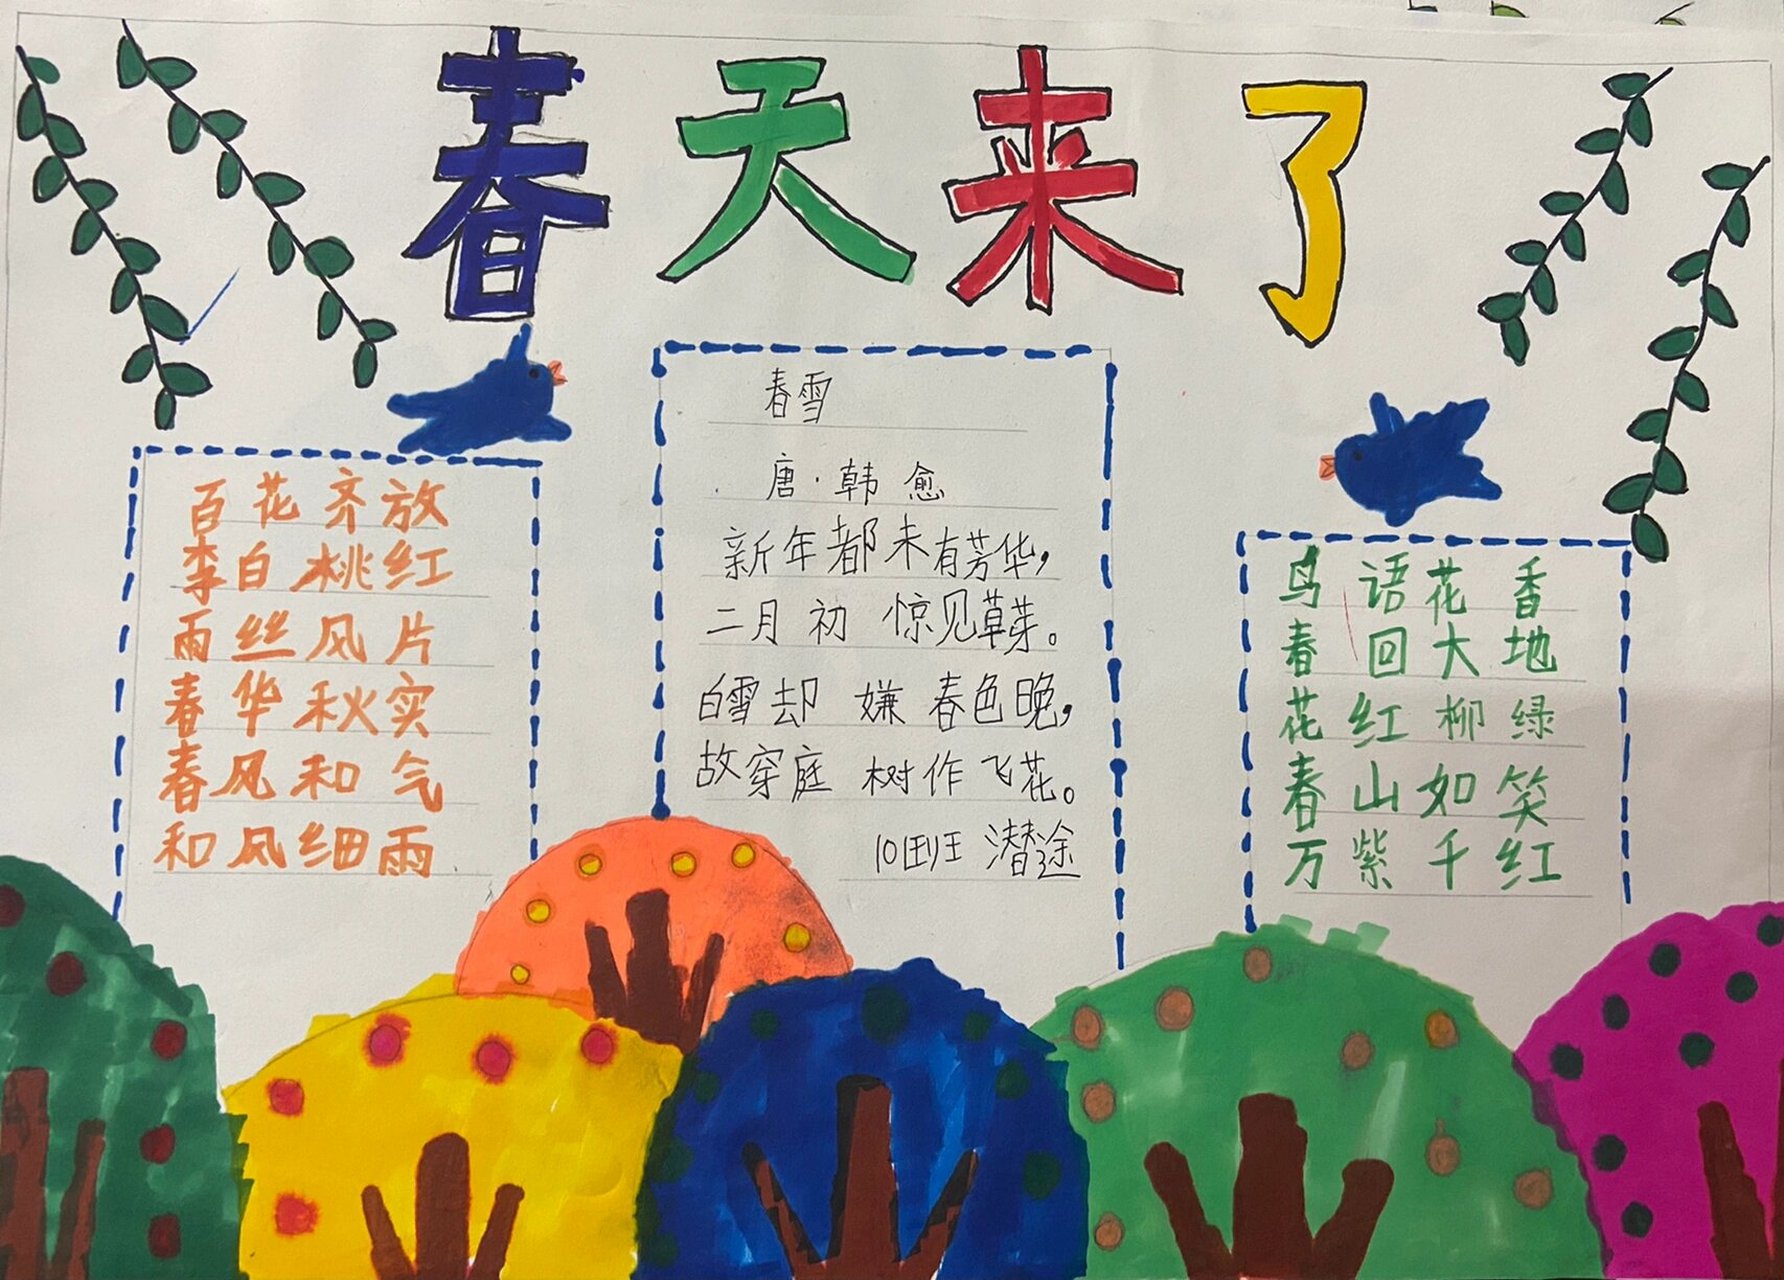 春天来了
百花齐放
李白桃红
雨丝风片
春华秋实
春风和气
和风细雨
春雪
唐·韩愈
新年都未有芳华，
二月初惊见草芽。
白雪却嫌春色晚，
故穿庭树作飞花。
10班
鸟语花香
春回大地
花红柳绿
春山如笑
万紫千红